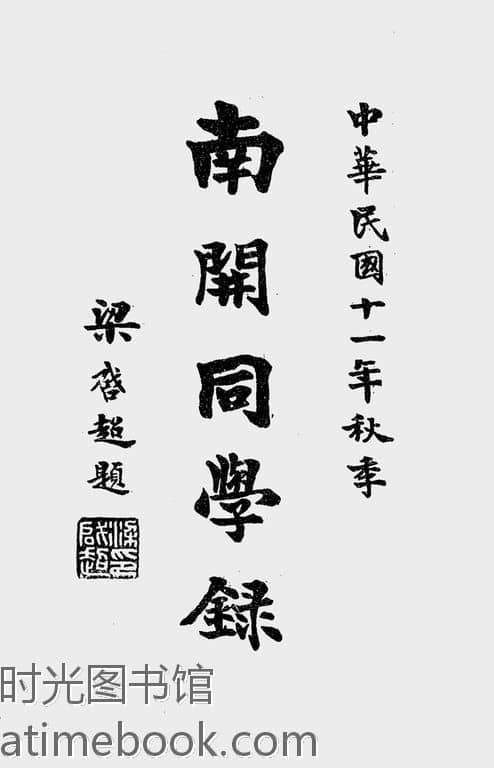 中華民國十一年秋季
南開同學録
梁啓超題
梁啓超印
时光图书馆
atimebook.com